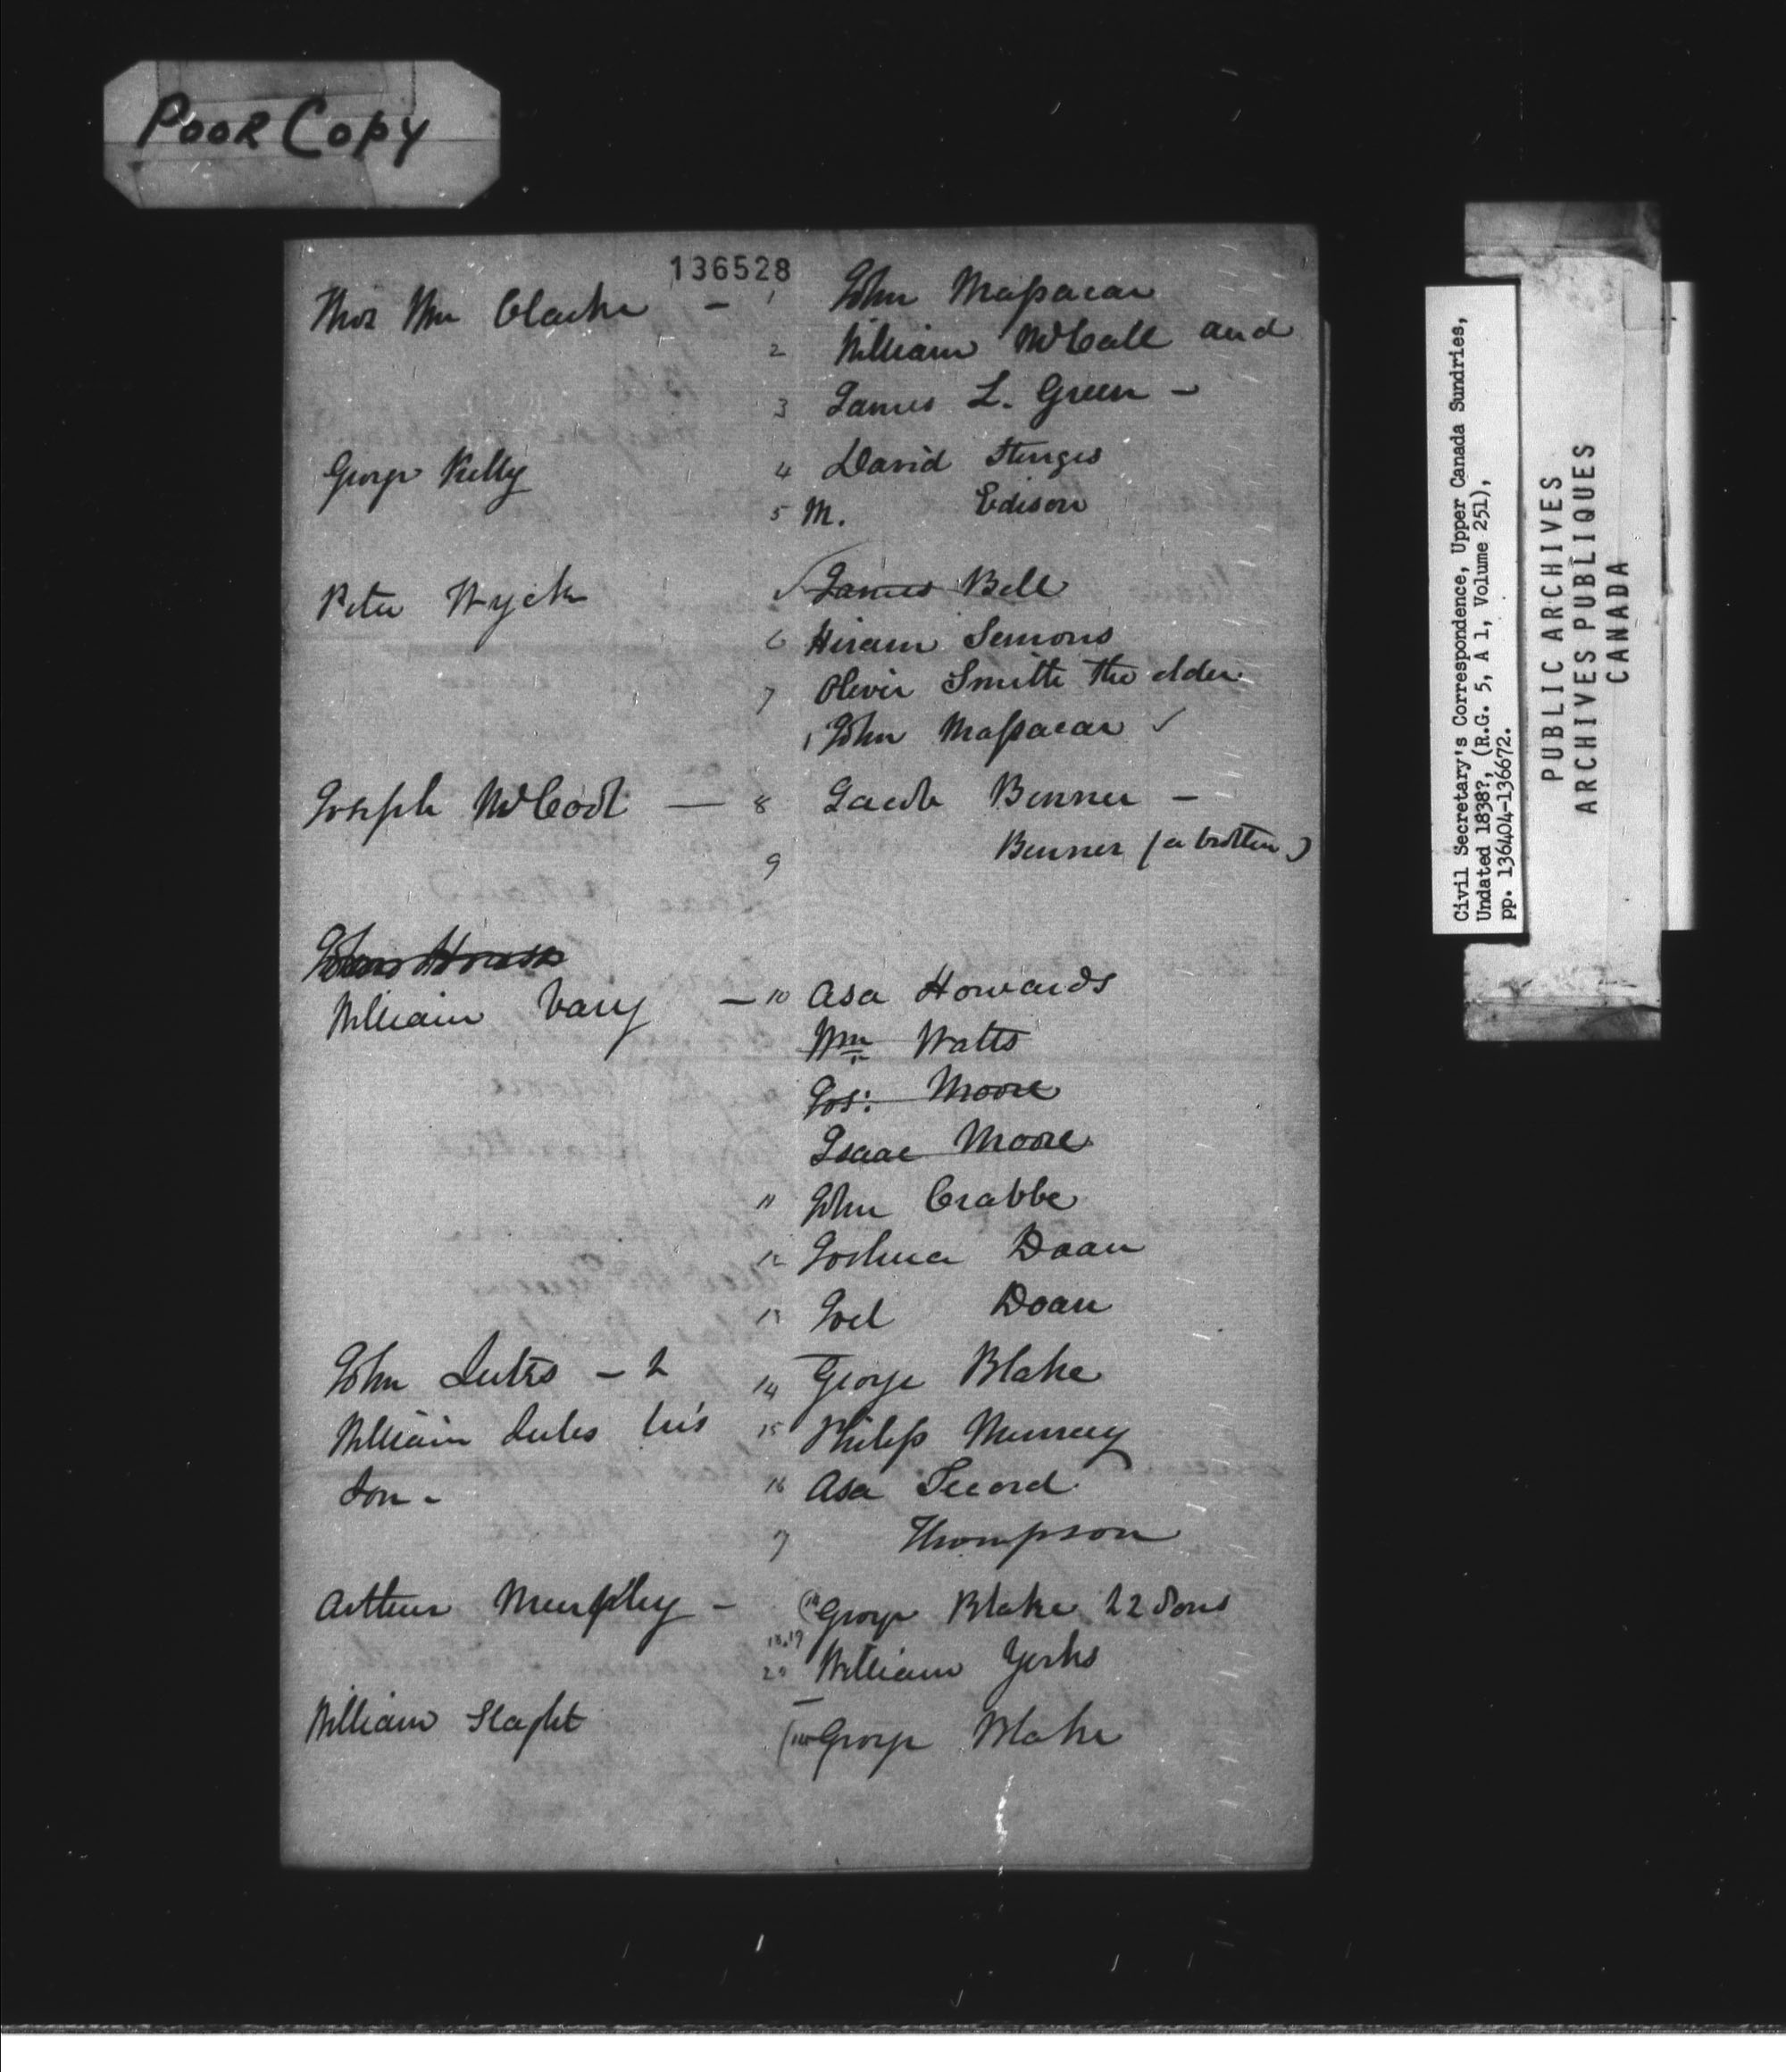 Poor Copy
136528
Thos Wm Clarke - 1 John Massacar
2 William McCall and
3 James L. Green -
George Kelly 4 David Sturges
5 M. Edison
Peter Wyck James Bell
6 Hiram Semons
7 Oliver Smith the elder
1 John Massacar ✓
Joseph McCool — 8 Jacob Benner -
9 Benner (a brother)
William Vary - 10 Asa Howards
Wm Watts
Jos: Moore
Isaac Moore
11 John Crabbe
12 Joshua Doan
13 Joel Doan
John Lutes - & 14 George Blake
William Lutes his 15 Philip Murray
son - 16 Asa Secord
17 Thompson
Arthur Murphy - (14 George Blake & 2 Sons
18.19
20 William Yerks
William Slaght George Blake
Civil Secretary's Correspondence, Upper Canada Sundries,
Undated 1838?, (R.G. 5, A 1, Volume 251),
pp. 136404-136672.
PUBLIC ARCHIVES
ARCHIVES PUBLIQUES
CANADA